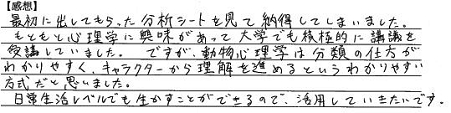 【感想】
最初に出してもらった分析シートを見て納得してしまいました。
もともと心理学に興味があって大学でも積極的に講議を
受講していました。ですが、動物心理学は分類の仕方が
わかりやすく、キャラクターから理解を進めるというわかりやすい
方式だと思いました。
日常生活レベルでも生かすことができるので、活用していきたいです。